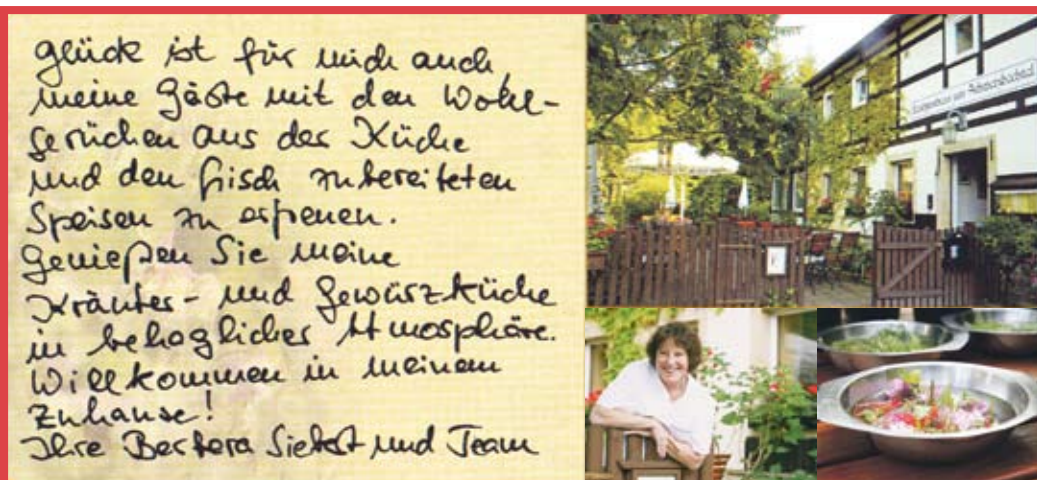 Glück ist für mich auch,
meine Gäste mit den Wohl-
gerüchen aus der Küche
und den frisch zubereiteten
Speisen zu erfreuen.
Genießen Sie meine
Kräuter- und Gewürzküche
in behaglicher Atmosphäre.
Willkommen in meinem
Zuhause!
Ihre und Team